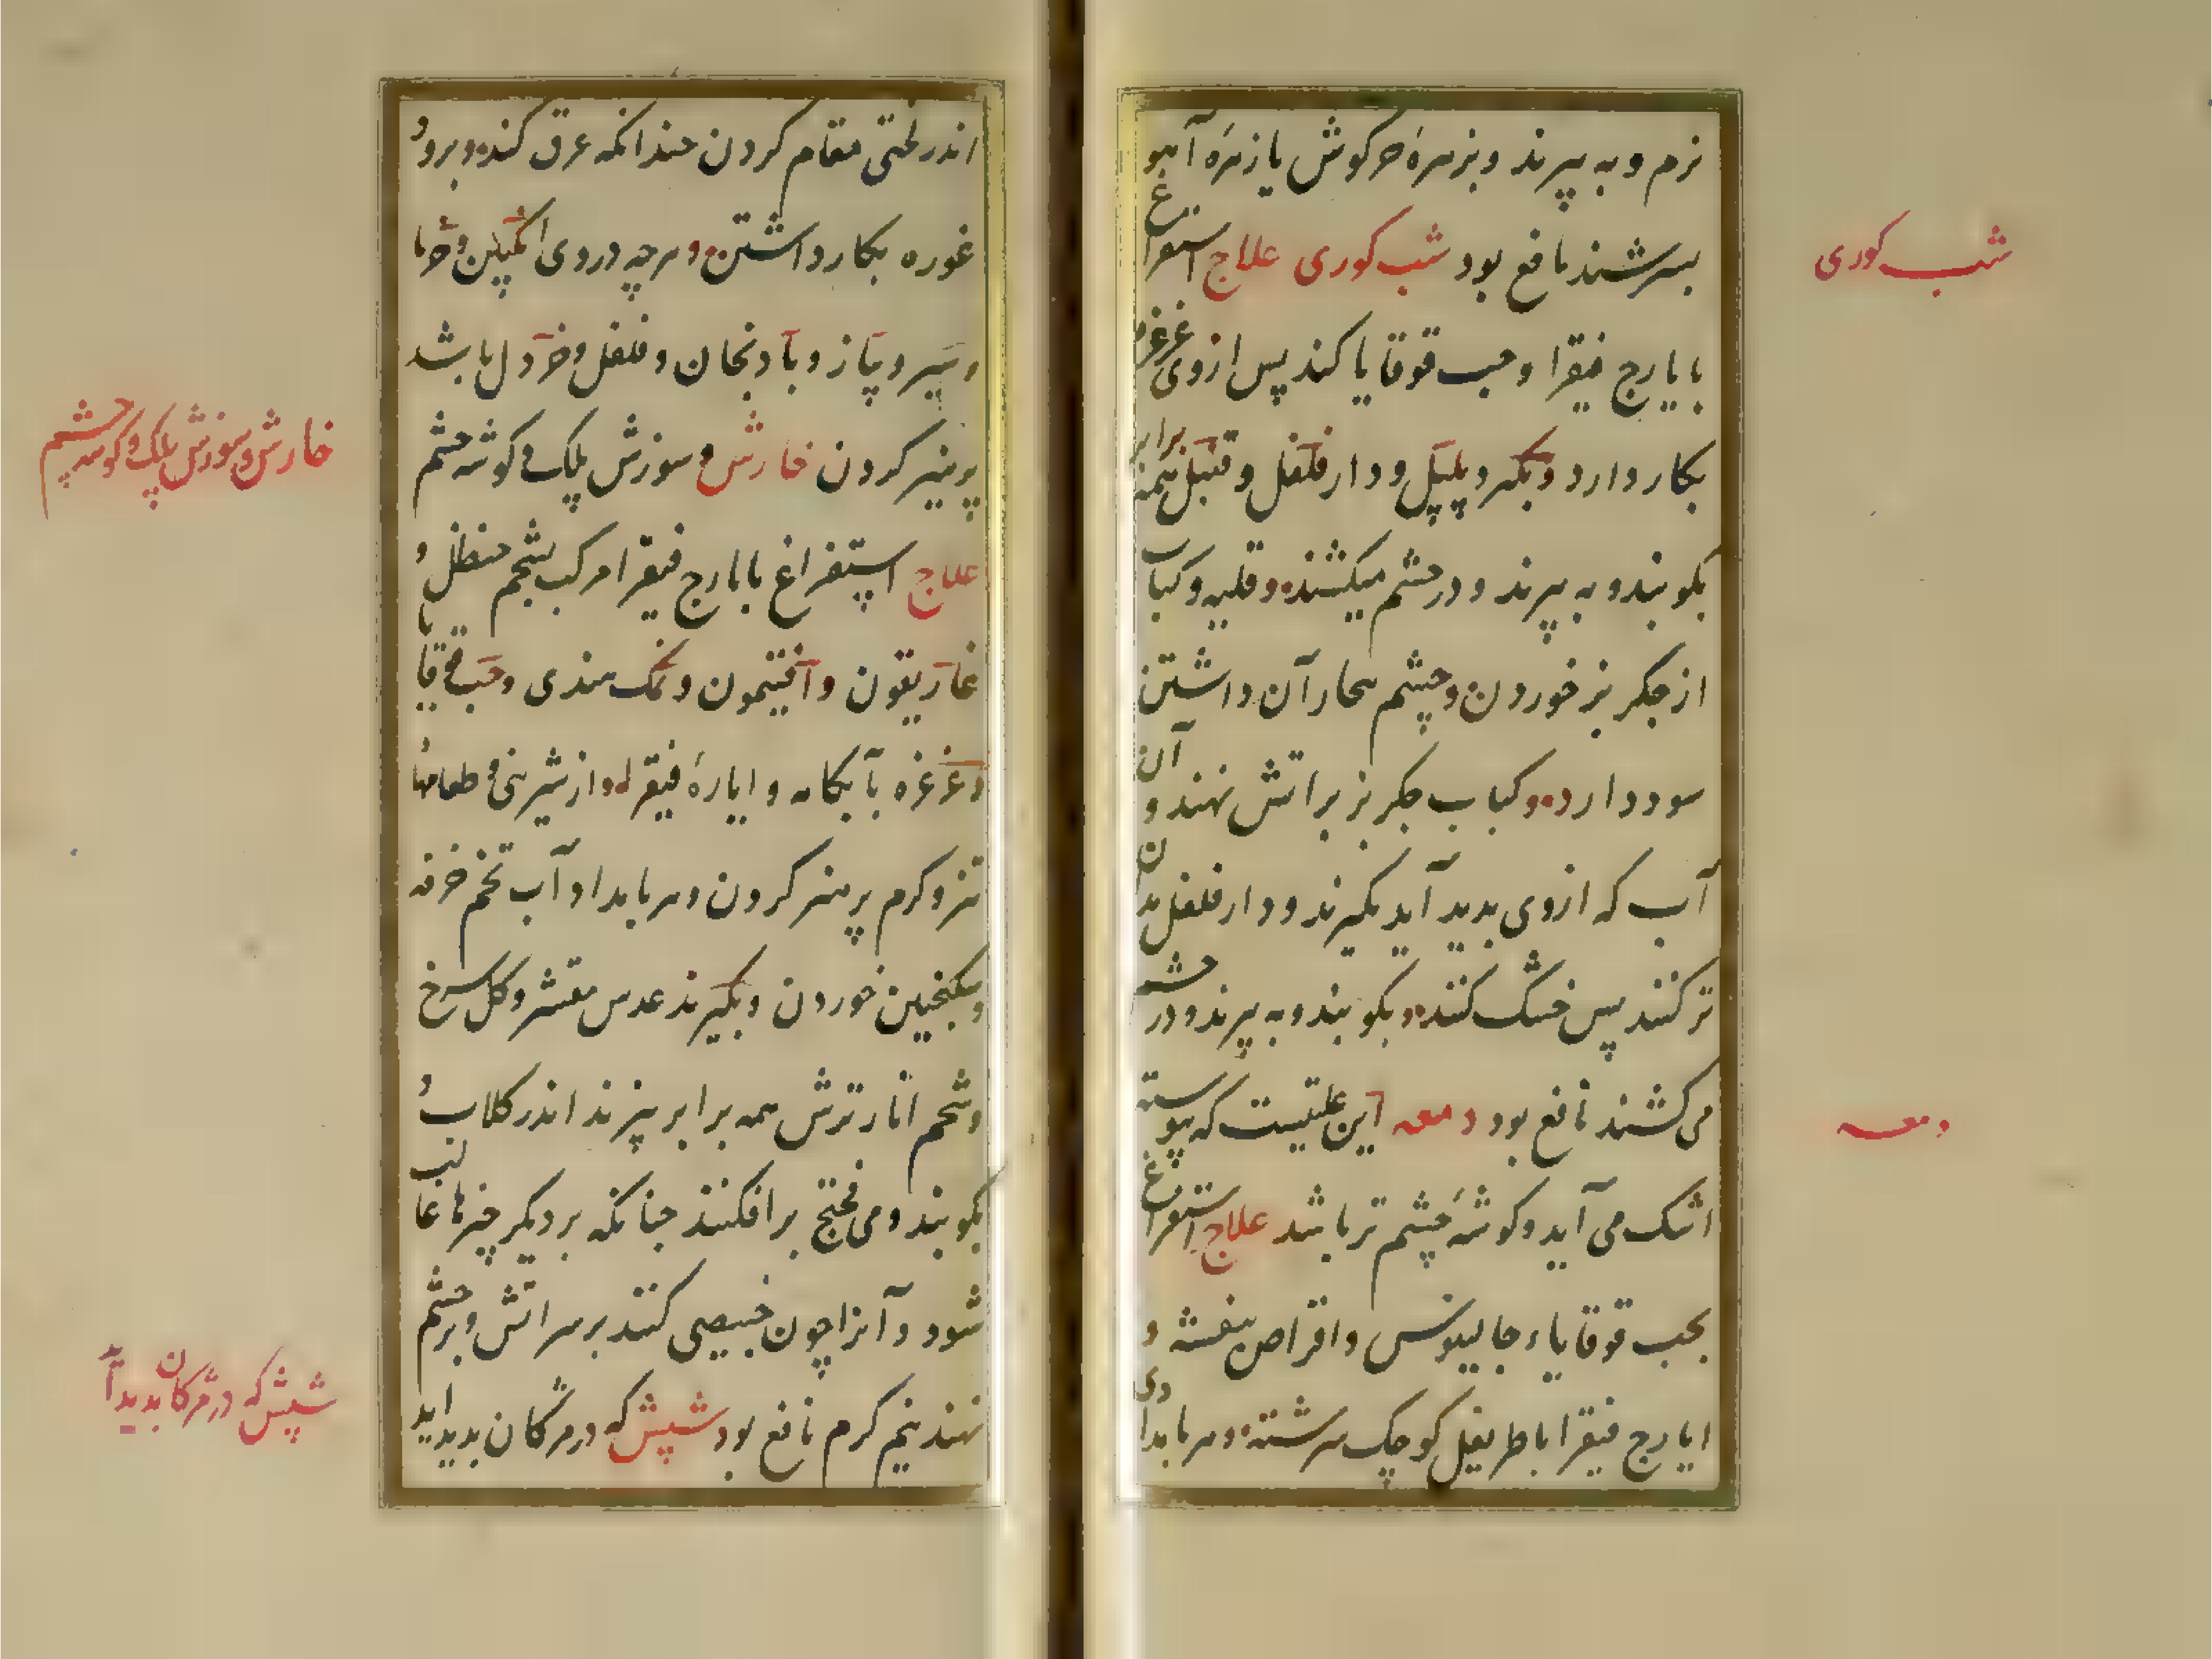 نرم و به بیزند و بزهرهٔ خرکوش یا زهرهٔ آهو
بسرشند نافع بود شب کوری علاج استفراغ
شب کوری
با یارج فیقرا و حب قوقایا کند پس ازوی غرغره
بکار دارد و بکیرد پلپل و دارفلفل و قنبل همه برابر
بکوبند و به بیزند و در چشم میکشند و قلیه و کباب
از جکر بز خوردن و چشم ببخار آن داشتن
سود دارد و کباب جکر بز براتش نهند و آن
آب که ازوی بدید آید بکیرند و دارفلفل بدان
تر کنند پس خشک کنند و بکوبند و به بیزند و در چشم
می کشند نافع بود دمعه این علتیست که پیوسته
دمعه
اشک می آید و کوشهٔ چشم تر باشد علاج استفراغ
بحب قوقایاء جالینوس و اقراص بنفشه و
ایارج فیقرا با طریفل کوچک سرشته و هر بامدادی
اندر لختی مقام کردن چندانکه عرق کند و برود
غوره بکار داشتن و هرچه دروی انکبین و خرما
و سیر و پیاز و بادنجان و فلفل و خردل باشد
پرهیز کردن خارش و سوزش پلک و کوشه چشم
خارش و سوزش پلک و کوشه چشم
علاج استفراغ بایارج فیقرا مرکب بشحم حنظل و
غاریقون و افتیمون و نمک هندی و حب قوقایا
و غرغره بآبکامه و ایارهٔ فیقرا و از شیرینی و طعامها
تیز و کرم پرهیز کردن و هر بامداد آب تخم خرفه
و سکنجبین خوردن و بکیرند عدس مقشر و کل سرخ
و شحم انار ترش همه برابر بپزند اندر کلاب و
بکوبند و می فختج برافکنند چنانکه بر دیکر چیزها غالب
شود و آنرا چون خبیصی کنند بر سر اتش و بر چشم
نهند نیم کرم نافع بود شپش که در مژکان بدید اید
شپش که در مژکان بدید آید